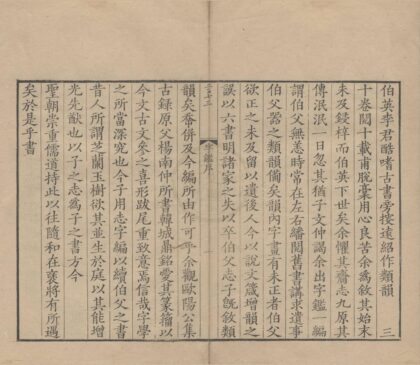 伯英李君酷嗜古書旁搜遠紹作類韻　三
十卷閱十載甫脫稾用心良苦余為敘其始末
未及鋟梓而伯英下世矣余懼其齎志九原其
傳泯泯一日忽其猶子文仲謁余出字鑑一編
謂伯父無恙時常在左右繙閱舊書講求遺事
伯父器之類韻備矣韻內字畫有未正者伯父
欲正之未及留以遺後人今以說文箴增韻之
誤以六書明諸家之失以卒伯父志子旣敘類
韻矣奇併及今編所由作可乎余觀歐陽公集
古錄原父楊南仲所書韓城鼎銘愛其篆籀以
今文古文參之喜形跋尾重致意焉信哉字學
之所當深究也今子用志字編以續伯父之書
昔人所謂芝蘭玉樹欲其並生於庭以其能增
光先猷也以子之志為子之書方今
聖朝崇重儒道持此以往隨和在褎將有所遇
矣於是乎書
字鑑序